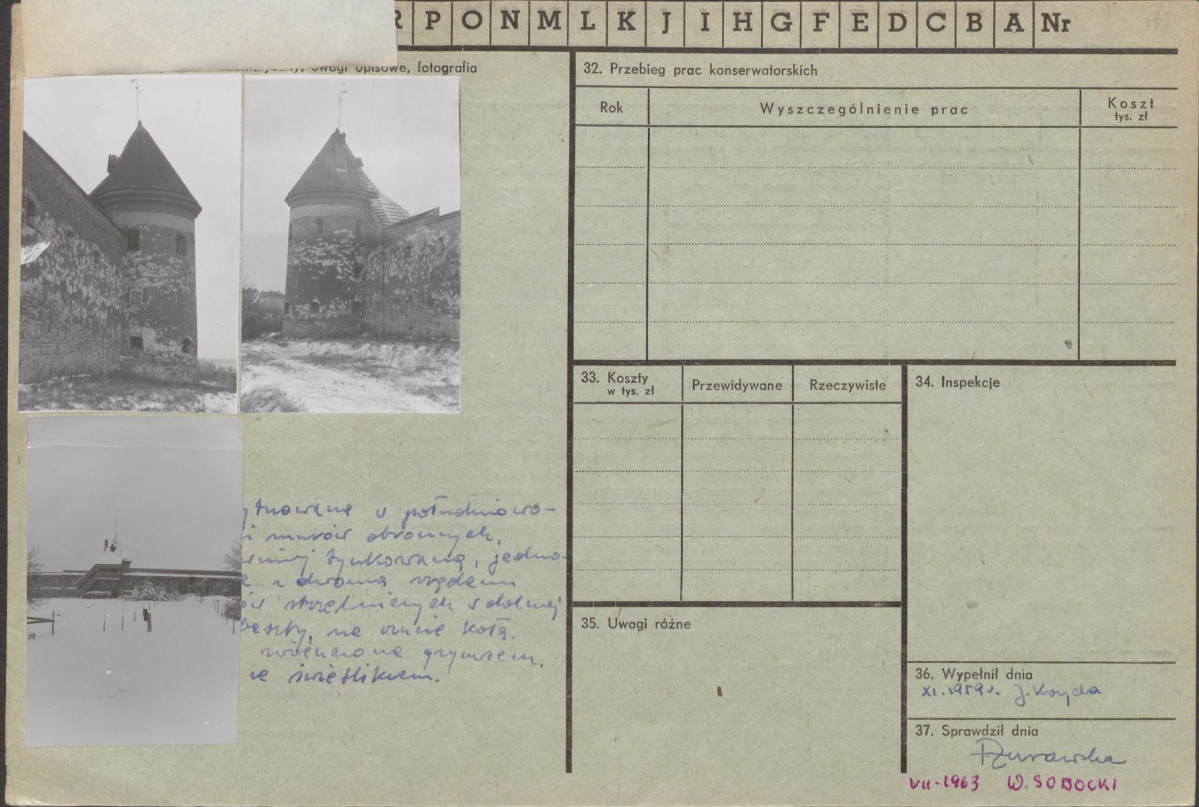 R P O N M L K J I H G F E D C B A Nr
uwagi opisowe, fotografia
32. Przebieg prac konserwatorskich
Rok
Wyszczególnienie prac
Koszt
tys. zł
33. Koszty
w tys. zł
Przewidywane
Rzeczywiste
34. Inspekcje
południowo-
murów obronnych,
tynkowana, jedno-
z dwoma rzędami
strzelniczych w dolnej
baszty, na rzucie koła.
zwieńczona gzymsem,
świetlikiem.
35. Uwagi różne
36. Wypełnił dnia
XI. 1959 r. J.
37. Sprawdził dnia
Żurawska
VII-1963 W. SOBOCKI